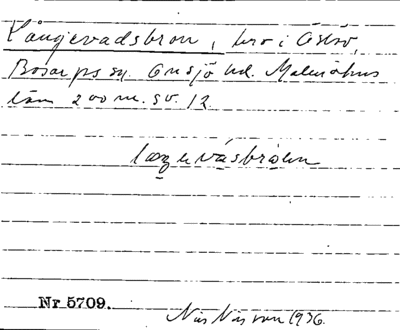 Långevadsbron, bro i Ö
Bosarps sn. Onsjö hd. Malmöhus
län 200 m. sv. 12
laŋevásbròen
Nr 5709.
Nils Nilsson 1936.